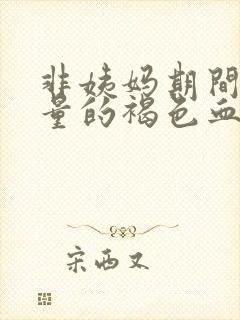 非姨妈期間
量的褐色血
宋西又